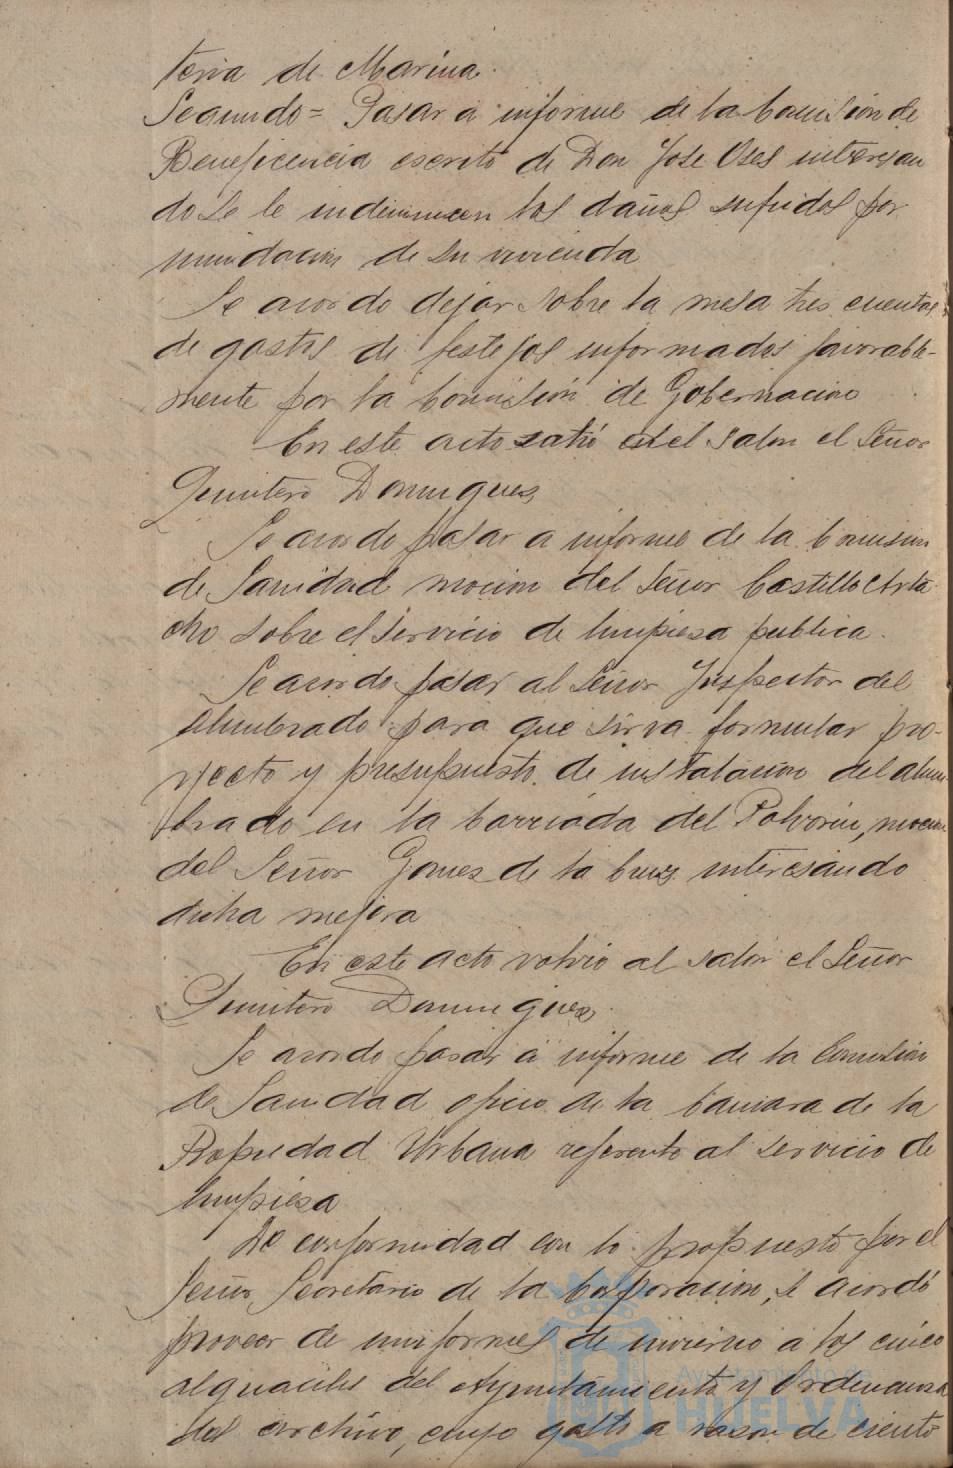 teria de Marina.
Segundo = Pasar a informe de la Comision de
Beneficencia escrito de Don Jose Oses interesan
do se le indemnicen los daños sufridos por
inundacion de su vivienda
Se acordo dejar sobre la mesa tres cuentas
de gastos de festejos informados favorable-
mente por la Comisión de Gobernacion
En este acto salió del salon el Señor
Quintero Dominguez
Se acordo pasar a informe de la Comision
de Sanidad mocion del Señor Castillo Arta
cho sobre el servicio de limpiesa publica.
Se acordo pasar al Señor Inspector del
alumbrado para que sirva formular pro-
yecto y presupuesto de instalacion del alum
brado en la barriada del Polvorin, mocion
del Señor Gomes de la Cruz interesando
dicha mejora
En este acto volvio al salon el Señor
Quintero Dominguez
Se acordo pasar a informe de la Comision
de Sanidad oficio de la Camara de la
Propiedad Urbana referente al servicio de
limpiesa
De conformidad con lo propuesto por el
Señor Secretario de la Corporacion, se acordó
proveer de uniformes de invierno a los cinco
alguaciles del Ayuntamiento y Ordenanza
del archivo, cuyo gasto a rason de ciento
Ayuntamiento de
HUELVA